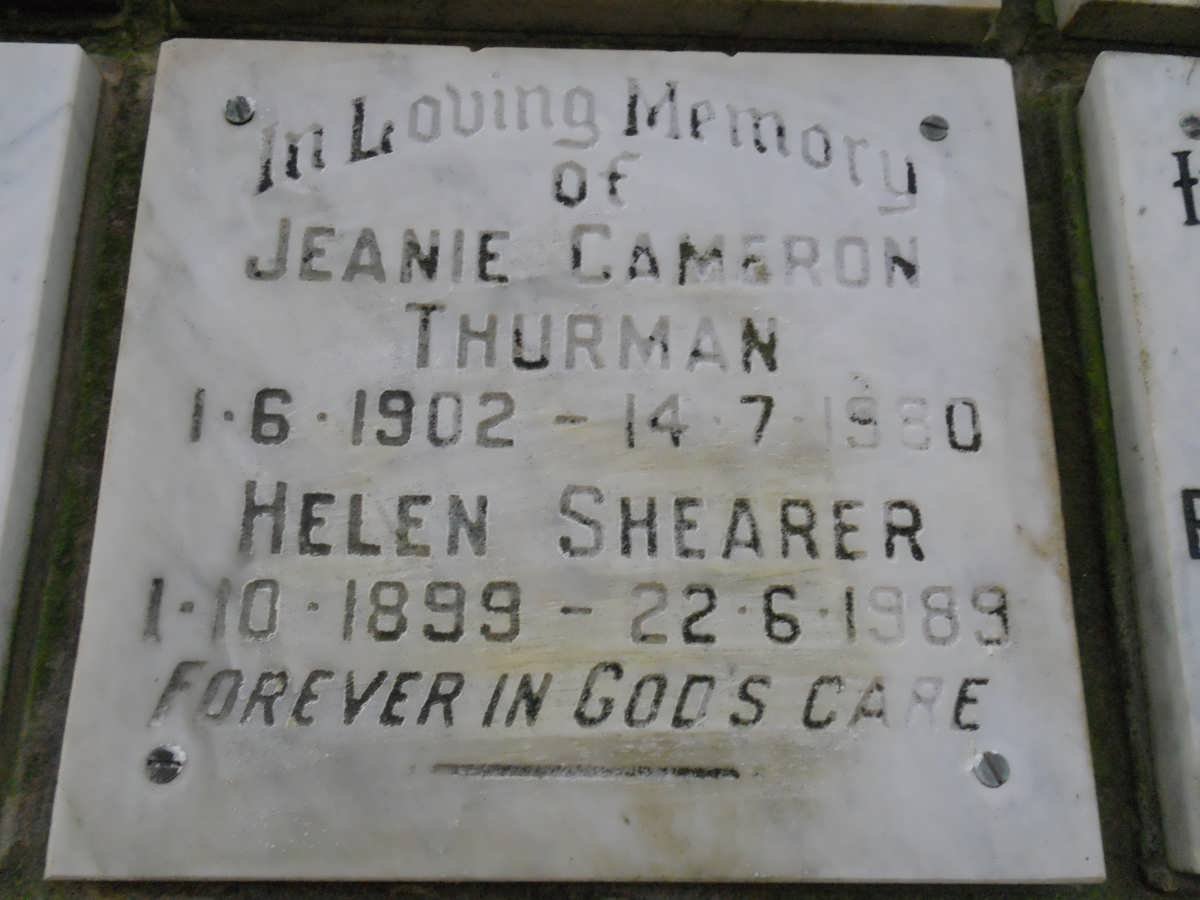 In Loving Memory
of
JEANIE CAMERON
THURMAN
1·6·1902 – 14·7·1980
HELEN SHEARER
1·10·1899 – 22·6·1989
FOREVER IN GOD'S CARE